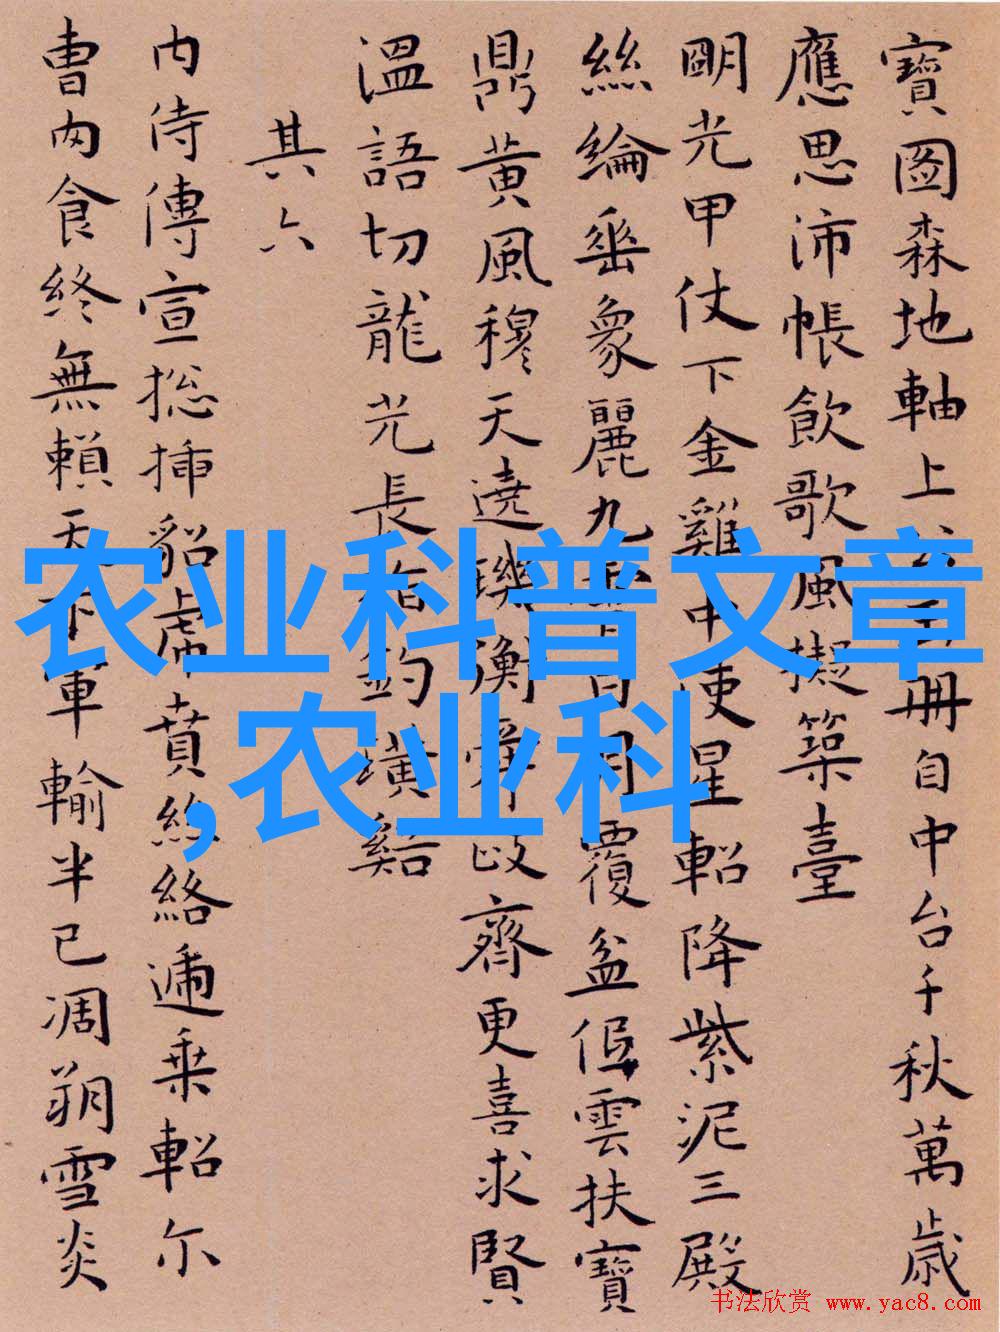 寶圖森地軸上
冊自中台千秋萬歲
應思沛帳飲歌風擬築臺
明光甲仗下金雞中使星軺降紫泥三殿
絲綸垂象麗九
覆盆
雲扶寶
鼎黃風穆天遶
衡舜
齊更喜求賢
溫語切龍光長
釣璜谿
其六
內侍傳宣總插貂
賁絲絡
乘軺尔
曹肉食終無賴天下軍輸半已凋朔雪炎
农业科普文章
,农业科
书法欣赏 www.yac8.com